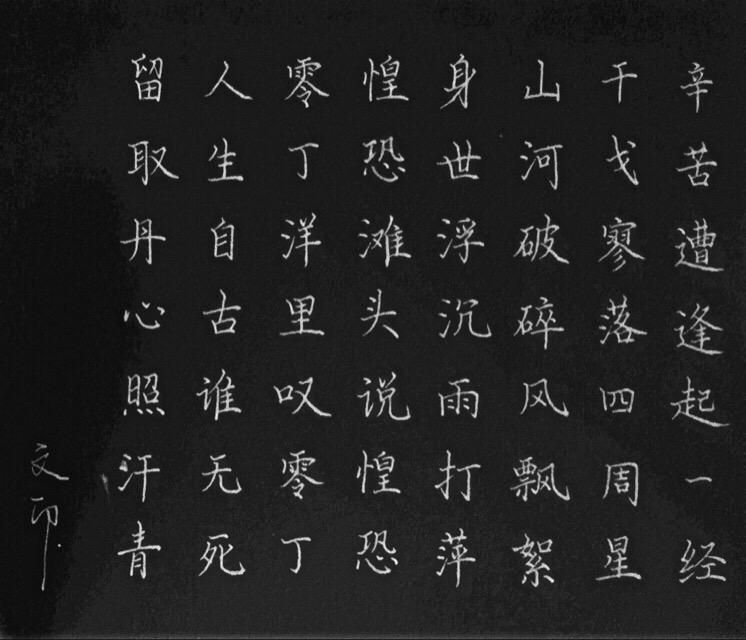 辛苦遭逢起一经
干戈寥落四周星
山河破碎风飘絮
身世浮沉雨打萍
惶恐滩头说惶恐
零丁洋里叹零丁
人生自古谁无死
留取丹心照汗青
文印